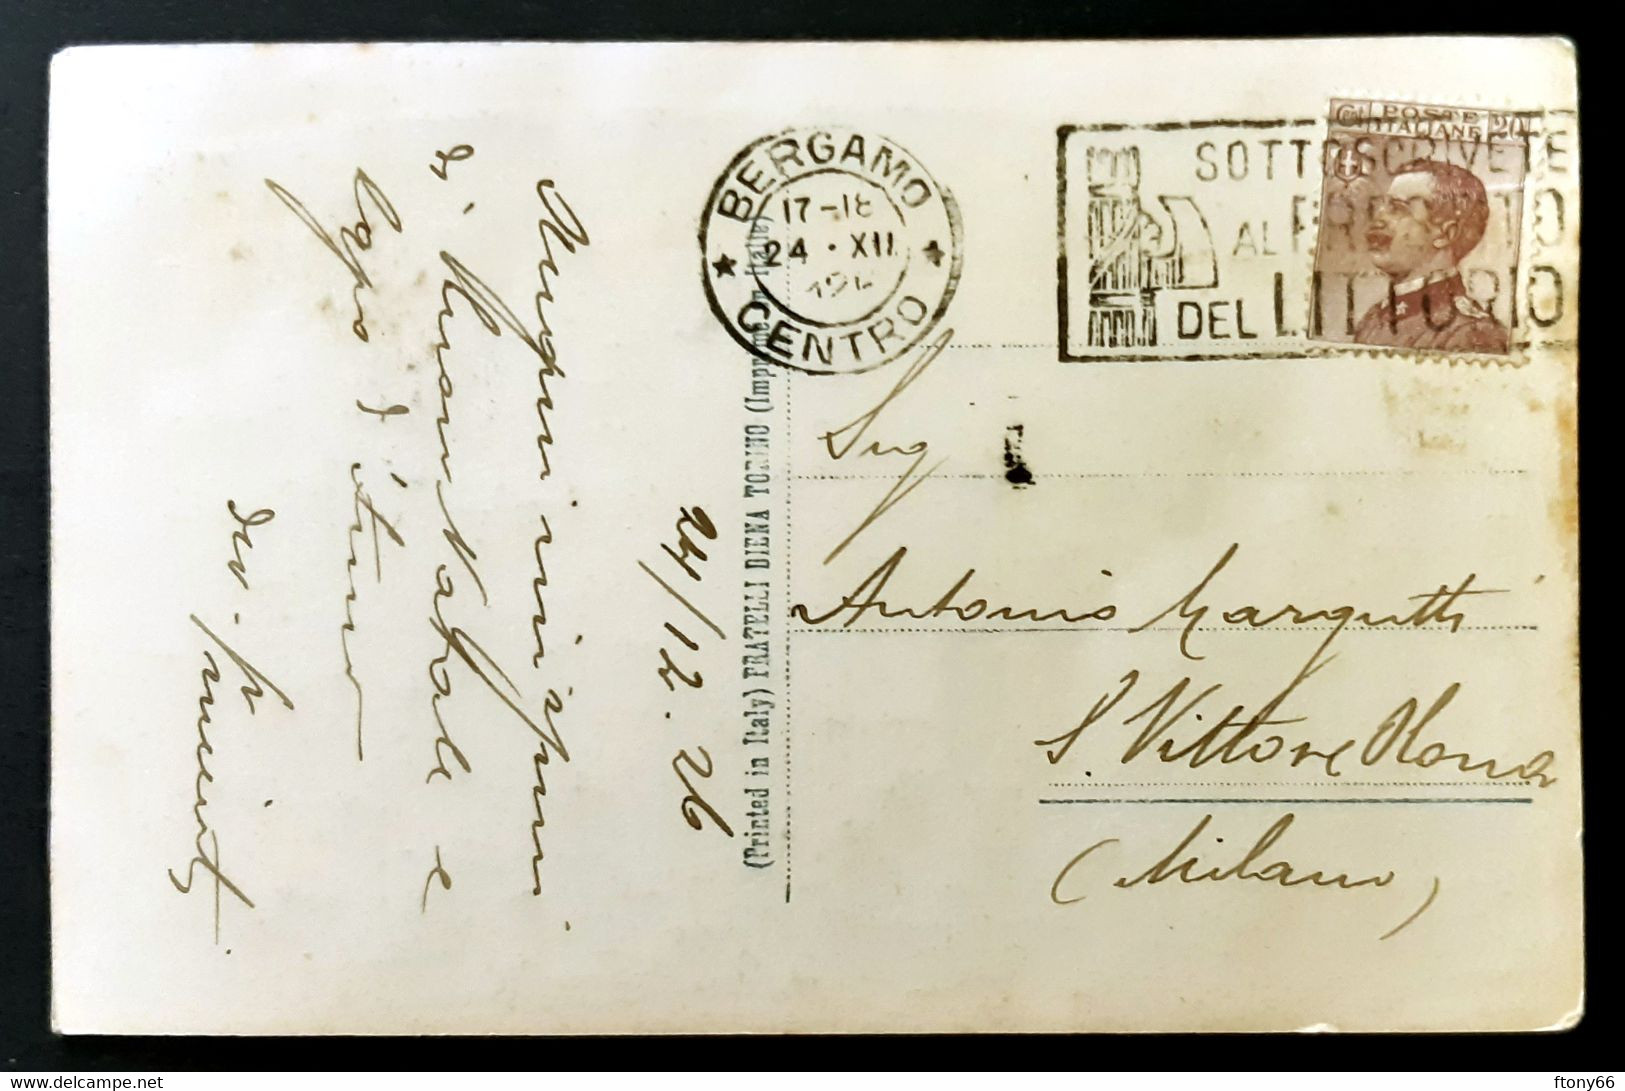 Auguri vivissimi
di buon Natale e
Capo d'Anno
24/12.26
(Printed in Italy) FRATELLI DIENA TORINO (Imprimé en Italie)
BERGAMO
17-18
24·XII
192
CENTRO
SOTTOSCRIVETE
AL PRESTITO
DEL LITTORIO
Cent POSTE ITALIANE 20
Sig
Antonio Margutti
S. Vittore Olona
(Milano)
ftony66